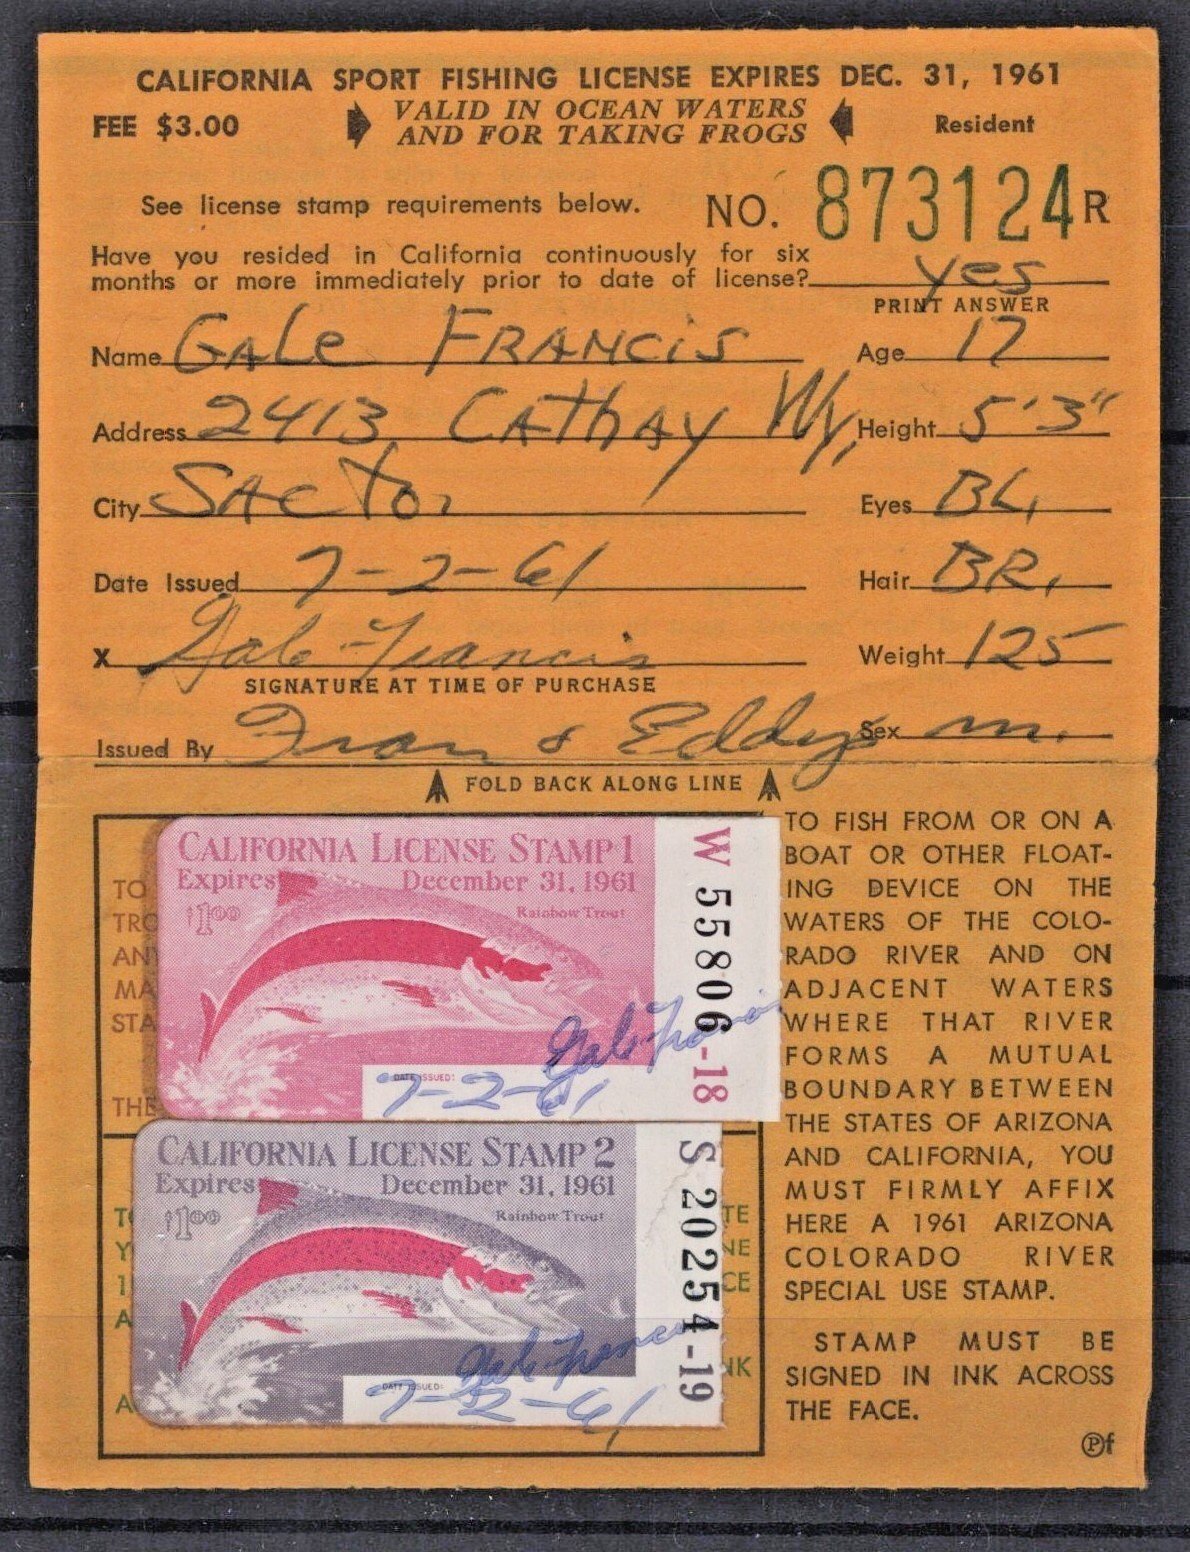 CALIFORNIA SPORT FISHING LICENSE EXPIRES DEC. 31, 1961
FEE $3.00
VALID IN OCEAN WATERS
AND FOR TAKING FROGS
Resident
See license stamp requirements below.
NO. 873124R
Have you resided in California continuously for six
months or more immediately prior to date of license? yes
PRINT ANSWER
Name GALe FRANCiS Age 17
Address 2413 CAThAY Wy, Height 5'3"
City SACTO. Eyes BL.
Date Issued 7-2-61 Hair BR.
X Gale Francis Weight 125
SIGNATURE AT TIME OF PURCHASE
Issued By Fran & Eddys Sex m.
FOLD BACK ALONG LINE
TO
TRO
AN
MA
STA
THE
CALIFORNIA LICENSE STAMP 1
Expires December 31, 1961
$1.00 Rainbow Trout
Gale Francis
DATE ISSUED:
7-2-61
W 55806-18
CALIFORNIA LICENSE STAMP 2
Expires December 31, 1961
$1.00 Rainbow Trout
Gale Francis
DATE ISSUED:
7-2-61
S 20254-19
T
Y
1
A
A
TE
NE
CE
NK
TO FISH FROM OR ON A
BOAT OR OTHER FLOAT-
ING DEVICE ON THE
WATERS OF THE COLO-
RADO RIVER AND ON
ADJACENT WATERS
WHERE THAT RIVER
FORMS A MUTUAL
BOUNDARY BETWEEN
THE STATES OF ARIZONA
AND CALIFORNIA, YOU
MUST FIRMLY AFFIX
HERE A 1961 ARIZONA
COLORADO RIVER
SPECIAL USE STAMP.
STAMP MUST BE
SIGNED IN INK ACROSS
THE FACE.
Ⓟf